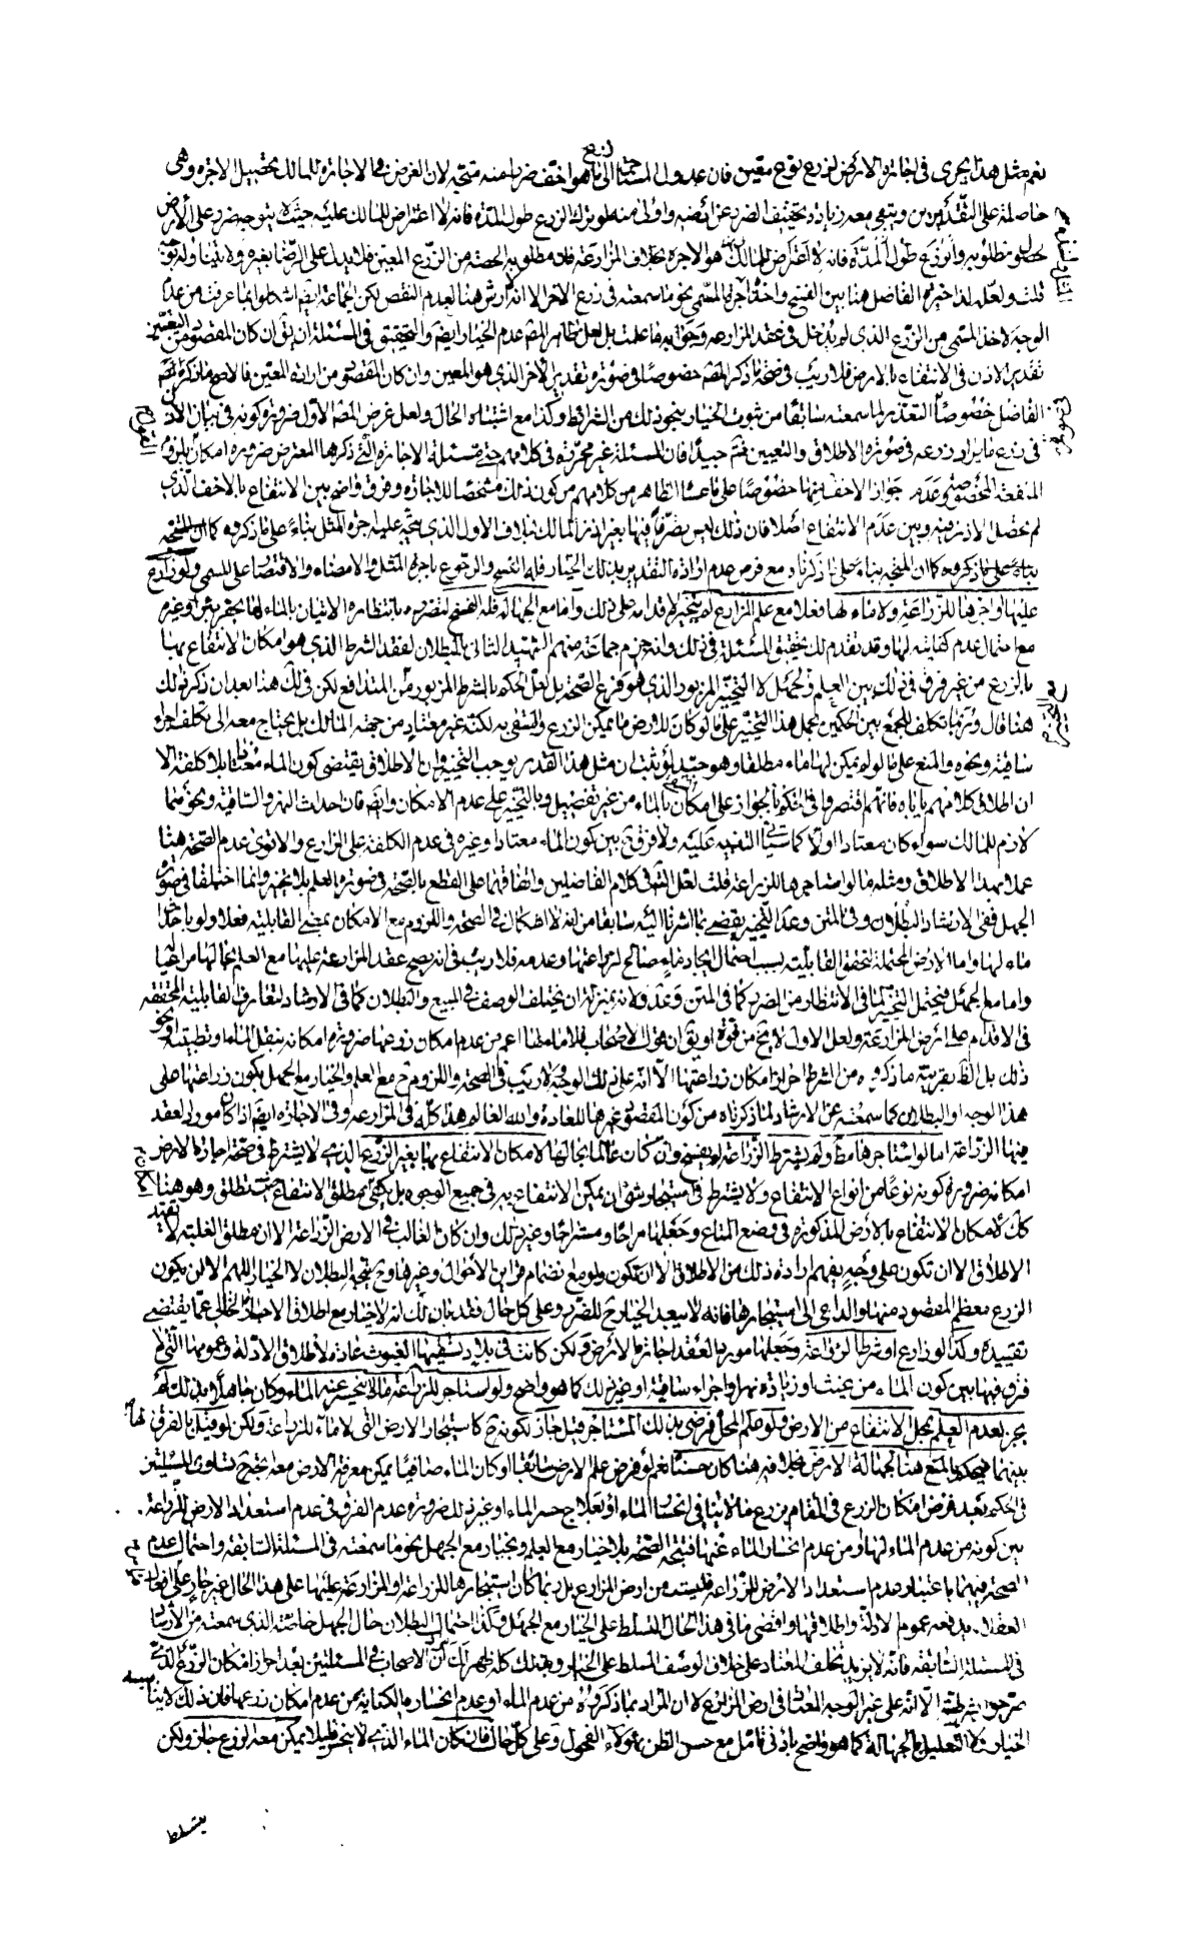 نعم مثل هذا يجرى فى اجارة الارض لزرع نوع معين فان عدول المستأجر الى زرع ما هو اخف ضررا منه متجه لان الغرض فى الاجارة للمالك تحصيل الاجرة وهى
حاصلة على التقديرين ويبقى معه زيادة تخفيف الضرر عن ارضه واولى منه لو ترك الزرع طول المدة فانه لا اعتراض للمالك عليه حيث لا يتوجه ضرر على الارض
لحصول مطلوبه ولو ترك الزرع طول المدة فانه لا اعتراض للمالك هو الاجرة بخلاف المزارعة فان مطلوبه الحصة من الزرع المعين فلا يدل على الرضا بغيره ولا يتناوله
قلت ولعله لذا خير الفاضل هنا بين الفسخ واخذ اجرة المسمى نحو ما سمعته فى زرع الاضر الا انه لا ارش هنا لعدم النقص لكن
الوجه لاخذ المسمى من الزرع الذى لم يدخل فى عقد المزارعة وحق به ما علمت بل لعل ظاهر المص عدم الخيار ايضا والتحقيق فى المسئلة ان يقال ان كان المقصود من التعيين
تقدير الاذن فى الانتفاع بالارض فلا ريب فى صحة ما ذكره المص خصوصا فى صورة تقدير الاضر الذى هو المعين وان كان المقصود من ارادة المعين فالاصح ما ذكره
الفاضل خصوصا اذا تعذر لما سمعته سابقا من ثبوت الخيار بنحو ذلك من الشرائط وكذا مع اشتباه الحال ولعل غرض المص الاول ضرورة كونه فى بيان الاذن
فى زرع ما يراد زرعه فى صورة الاطلاق والتعيين فتم جيدا فان المسئلة غير محررة فى كلامهم حتى مسئلة الاجارة التى ذكرها المعترض ضرورة امكان
المنفعة المخصوصة وعدم جواز الاخف فيها خصوصا على ما عساه الظاهر من كلامهم من كون ذلك مشخصا للاجارة وفرق واضح بين الانتفاع بالاخف الذى
لم يحصل الاذن فيه وبين عدم الانتفاع اصلا فان ذلك ليس تصرفا فيها بغير اذن المالك بخلاف الاول الذى يتجه عليه اجرة المثل بناء على ما ذكروه كما ان المتجه
بناء على ما ذكروه كما ان المتجه بناء على ما ذكرنا مع فرض عدم ارادة التقدير بذلك الخيار فله الفسخ والرجوع باجرة المثل والامضاء والاقتصار على المسمى ولو زارع
عليها او اجرها للزراعة ولا ماء لها فعلا مع علم المزارع لم يتخير لاقدامه على ذلك واما مع الجهالة فله الفسخ لتضرره بانتظاره الاتيان بالماء لها بحفر بئر او غيره
مع احتمال عدم كفايته لها وقد تقدم لك تحقيق المسئلة فى ذلك وانه جزم جماعة منهم الشهيد الثانى بالبطلان لفقد الشرط الذى هو امكان الانتفاع بها
بالزرع من غير فرق فى ذلك بين العلم والجهل لا التخيير المزبور الذى هو فرع الصحة بل لعل الحكم بالشرط المزبور من المتدافع لكن فى لك هذا بعد ان ذكر ذلك
هنا قال وربما تكلف للجمع بين الحكمين بحمل هذا التخيير على ما لو كان للارض ما يمكن الزرع والسقى به لكنه غير معتاد من جهة المالك بل يحتاج معه الى تكلف اجراء
ساقية ونحوه والمنع على ما لو لم يكن لها ماء مطلقا وهو جيد لو ثبت ان مثل هذا القدر يوجب التخيير وان الاطلاق يقتضى كون الماء معتادا بلا كلفة الا
ان اطلاق كلامهم يأباه فانهم اقتصروا فى الحكم بالجواز على امكان الماء من غير تفصيل وبالتخيير على عدم الامكان وايضا فان احداث النهر والساقية ونحوهما
لازم للمالك سواء كان معتادا اولا كما سيأتى التنبيه عليه ولا فرق ح بين كون الماء معتادا وغيره فى عدم الكلفة على الزارع والاقوى عدم الصحة هنا
عملا بهذا الاطلاق ومثله ما لو استاجرها للزراعة قلت لعل التأمل فى كلام الفاضلين واتفاقهما على القطع بالصحة فى صورة العلم بلا تخيير وانما اختلفا فى صورة
الجهل ففى الارشاد البطلان وفى المتن وعد التخيير يقضى بما اشرنا اليه سابقا من انه لا اشكال فى الصحة واللزوم مع الامكان بمعنى القابلية فعلا ولو باحداث
ماء لها واما الارض المحتملة لتحقق القابلية بسبب احتمال ايجاد ماء صالح لزراعتها وعدمه فلا ريب فى انه يصح عقد المزارعة عليها مع العلم بحالها
واما مع الجهل فيحتمل التخيير لما فى الانتظار من الضرر كما فى المتن وعد ولانه بمنزلة ان يختلف الوصف فى المبيع والبطلان كما فى الارشاد لتعارف القابلية المحققة
فى الاقدام على ارض المزارعة ولعل الاول لا يخ من قوة او يق ان مراد الاصحاب فلا ماء لها اعم من عدم امكان زرعها ضرورة امكانه بنقل الماء وتطبيقه او نحو
ذلك بل الظ بقرينة ما ذكروه من الشرط احراز امكان زراعتها الا انه على ذلك الوجه لا ريب فى الصحة واللزوم ح مع العلم والخيار مع الجهل بكون زراعتها على
هذا الوجه او البطلان كما سمعته عن الارشاد لما ذكرناه من كون المقصود غيرها للعادة والله العالم هذا كله فى المزارعة وفى الاجارة ايضا اذا كان مورد العقد
فيها الزراعة اما لو استاجرها مط ولم يشترط الزراعة لم يفسخ وان كان عالما بحالها لامكان الانتفاع بها بغير الزرع الذى لا يشترط فى صحة اجارة الارض
امكانه ضرورة كونه نوعا من انواع الانتفاع ولا يشترط فى استيجار شئ ان يمكن الانتفاع به فى جميع الوجوه بل يكفى مطلق الانتفاع حيث تطلق وهو هنا
كذلك لامكان الانتفاع بالارض المذكورة فى وضع المتاع وجعلها مراحا ومسرحا وغير ذلك وان كان الغالب فى الارض الزراعة الا ان مطلق الغلبة لا تقيد
الاطلاق الا ان تكون على وجه يفهم ارادة ذلك من الاطلاق الا ان تكون ولو مع انضمام قراين الاحوال وغيرها وح يتجه البطلان لا الخيار اللهم الا ان يكون
الزرع معظم المقصود منها والداعى الى استيجارها فانه لا يبعد الخيار ح للضرر وعلى كل حال فقد بان لك انه لا خيار مع اطلاق الاجارة الخالى عما يقتضى
تقييده وكذا لو زارع او شرط الزراعة وجعلها مورد العقد اجارة الارض ولكن كانت فى بلاد تسقيها الغيوث عادة لاطلاق الادلة وعمومها التى لا
فرق فيها بين كون الماء من غيث او زيادة نهر او اجراء ساقية او غير ذلك كما هو واضح ولو استاجر للزراعة ما لا ينحسر عنه الماء وكان جاهلا بذلك لم
يجز لعدم العلم بمحل الانتفاع من الارض ولو علم المحل فرضى بذلك المستاجر قيل جاز لكونه ح كاستيجار الارض التى لا ماء للزراعة ولكن لو قيل بالفرق
بينهما فيحكم بالمنع هنا لجهالة الارض بخلافه هنا كان حسنا نعم لو فرض علم الارض سابقا او كان الماء صافيا يمكن معرفة الارض معه اتجه تساوى المسئلتين
فى الحكم بعد فرض امكان الزرع فى المقام بزرع ما لا ينافى انحسار الماء او بعلاج حسر الماء او غير ذلك ضرورة عدم الفرق فى عدم استعداد الارض للزراعة
بين كونه من عدم الماء لها او من عدم انحسار الماء عنها فتتجه الصحة بلا خيار مع العلم وبخيار مع الجهل نحو ما سمعته فى المسئلة السابقة واحتمال عدم
الصحة فيهما باعتبار عدم استعداد الارض للزراعة فليست من ارض المزارع بل ربما كان استيجارها للزراعة او المزارعة عليها على هذا الحال غير جار على افعال
العقلاء يدفعه عموم الادلة واطلاقها واقصى ما فى هذا الحال التسلط على الخيار مع الجهل وكذا احتمال البطلان حال الجهل خاصة الذى سمعته من الارشاد
فى المسئلة السابقة فانه لا يزيد تخلف المعتاد على خلاف الوصف المسلط على الخيار وبذلك كله ظهر لك ان الاصحاب فى المسئلتين بعد احراز امكان الزرع الذى
صرحوا بشرطيته الا انه على غير الوجه المعتاد فى ارض المزارع لا ان المراد بما ذكروه من عدم الماء او عدم انحساره بالكناية عن عدم امكان زرعها فان ذلك لا يناسبه
الخيار ولا التعليل بالجهالة كما هو واضح بادنى تامل مع حسن الظن بهؤلاء الفحول وعلى كل حال فان كان الماء الذى لا ينحسر قليلا يمكن معه الزرع جاز ولكن
يتسلط